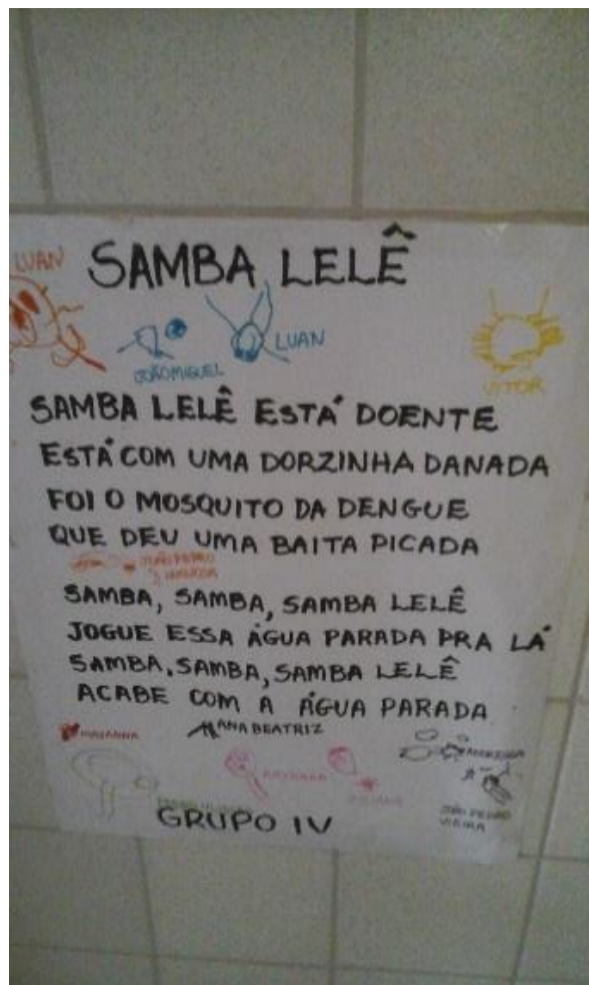 LUAN
SAMBA LELÊ
JOÃO MIGUEL
LUAN
VITOR
SAMBA LELÊ ESTÁ DOENTE
ESTÁ COM UMA DORZINHA DANADA
FOI O MOSQUITO DA DENGUE
QUE DEU UMA BAITA PICADA
JOÃO PEDRO
SAMBA, SAMBA, SAMBA LELÊ
JOGUE ESSA ÁGUA PARADA PRA LÁ
SAMBA, SAMBA, SAMBA LELÊ
ACABE COM A ÁGUA PARADA
ANA BEATRIZ
JOÃO PEDRO
VIEIRA
GRUPO IV